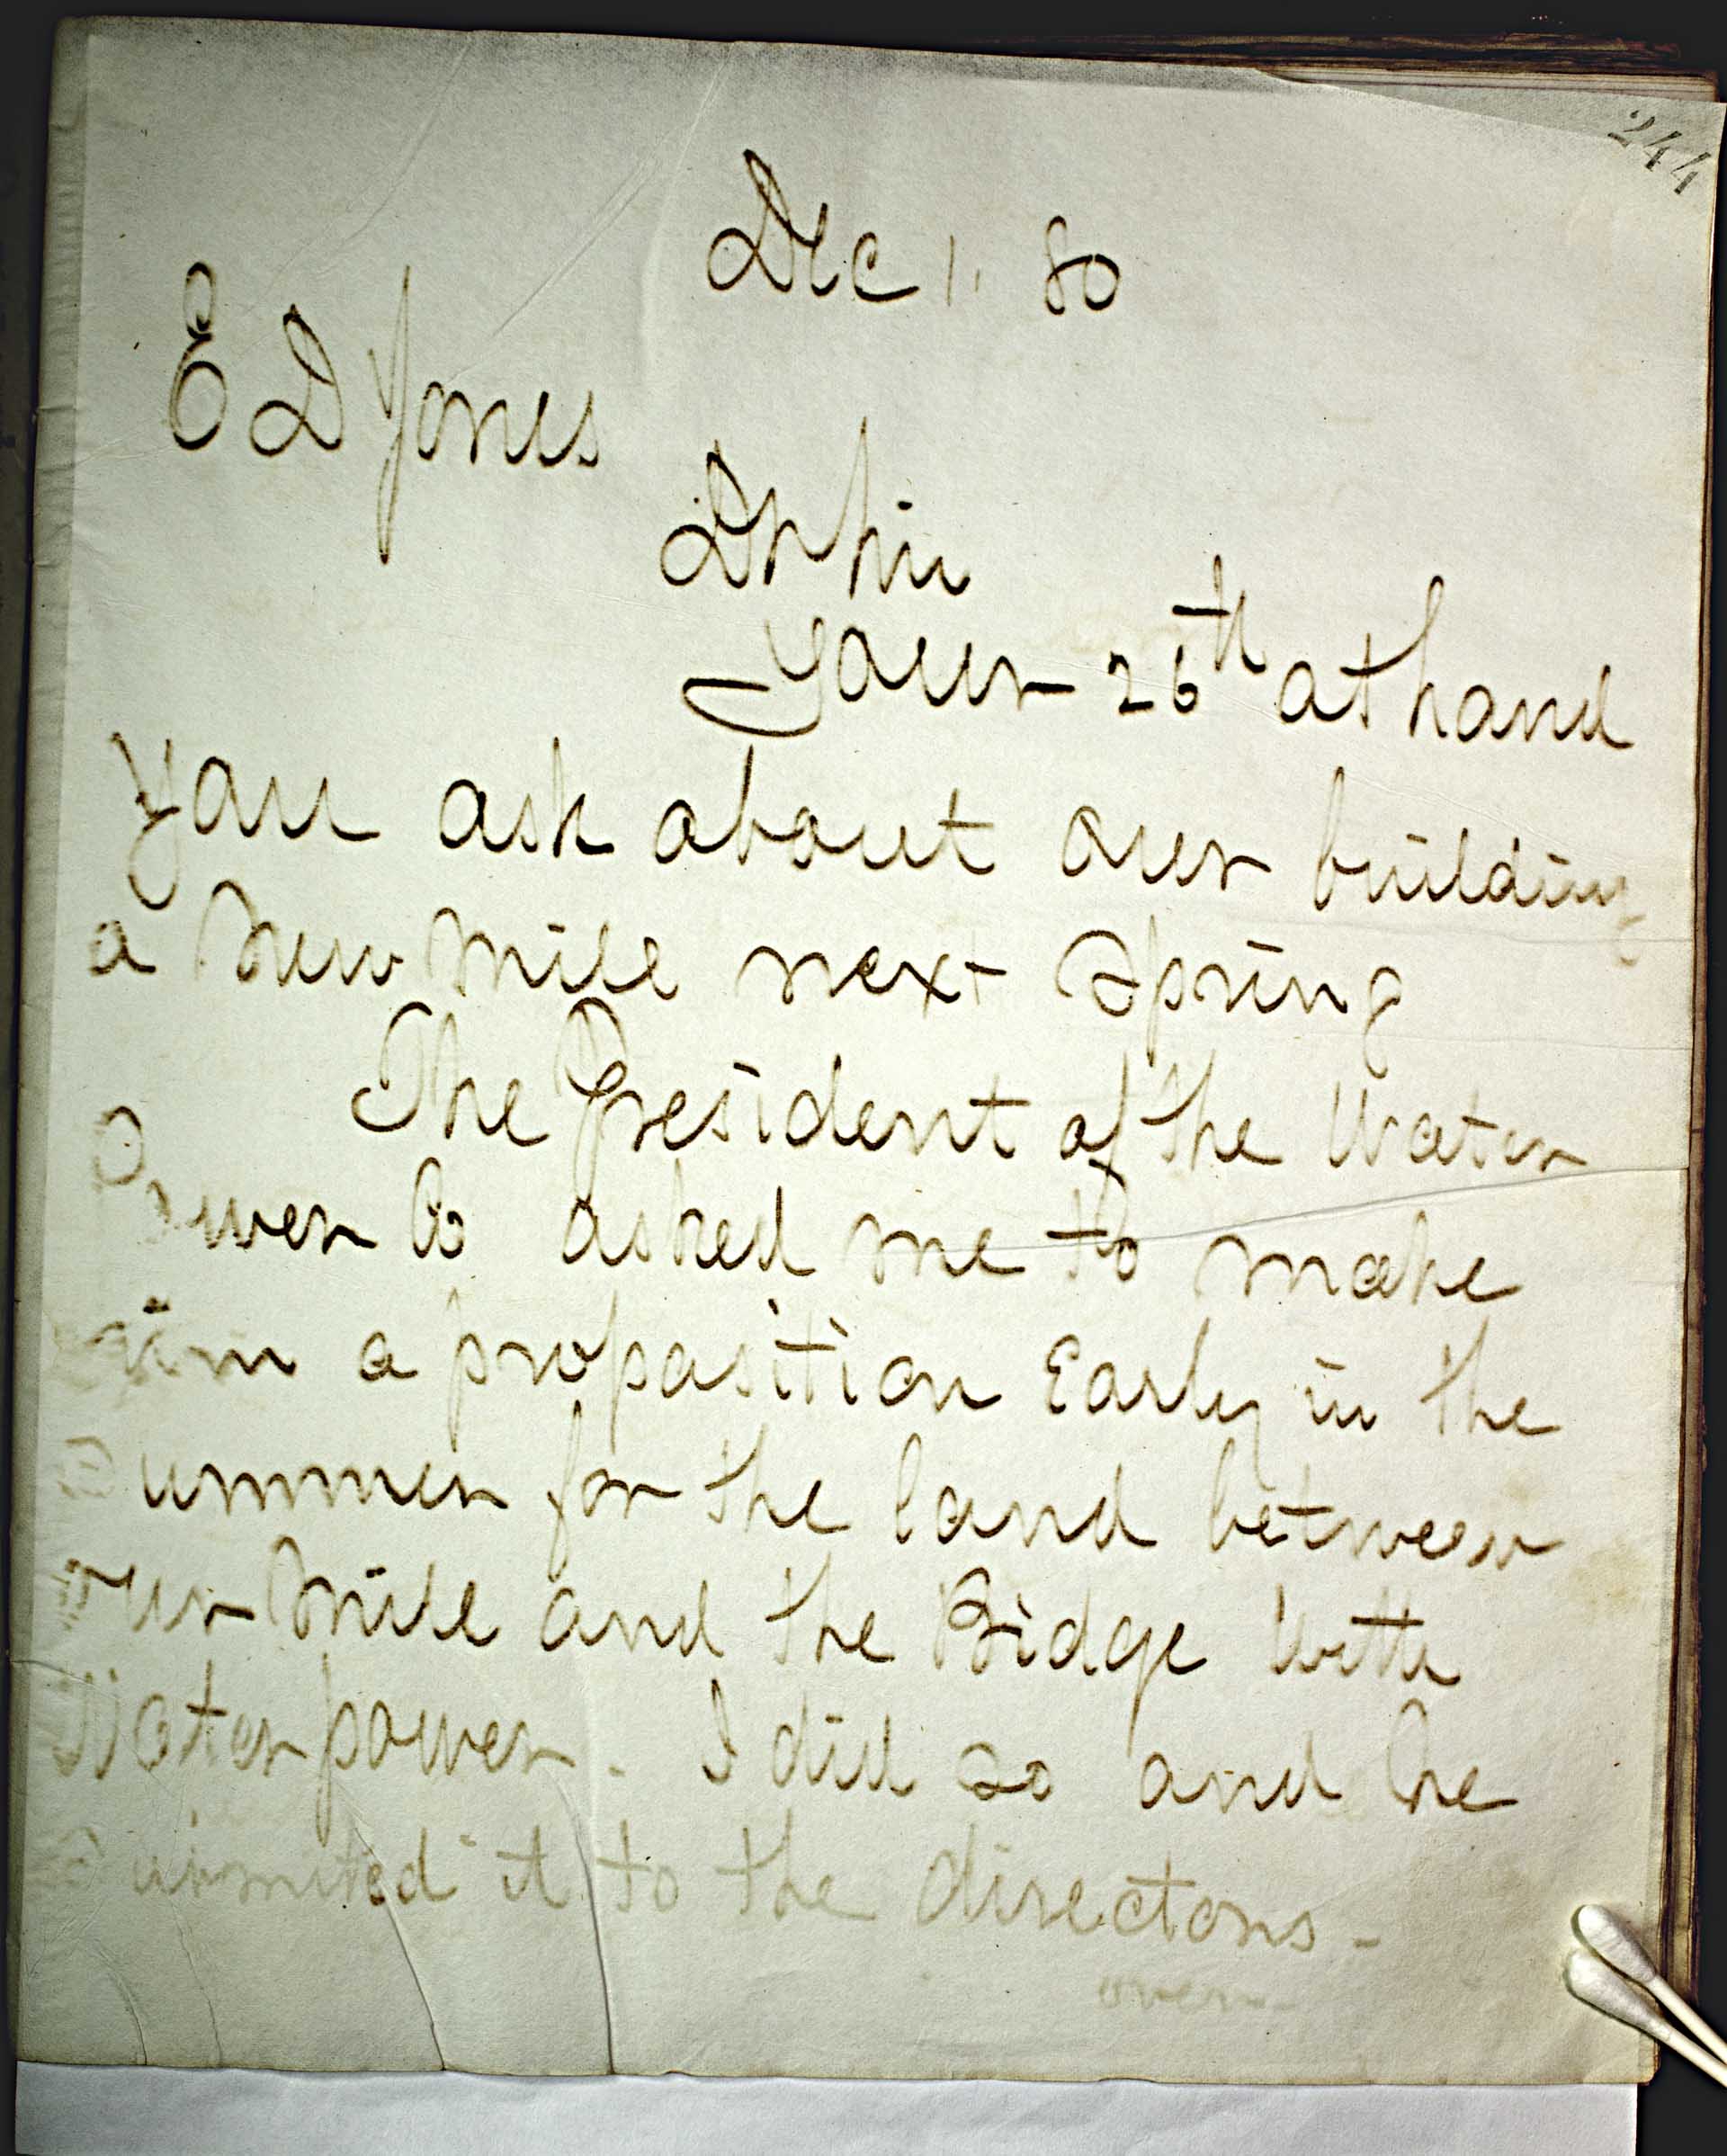 244
Dec 1. 80
E D Jones
Dr Sir
Your 26th at hand
You ask about our building
a New Mill next Spring
The President of the Water
Power Co asked me to make
him a proposition Early in the
Summer for the land between
our Mill and the Bidge with
Water power. I did so and he
Submited it to the directors.
over